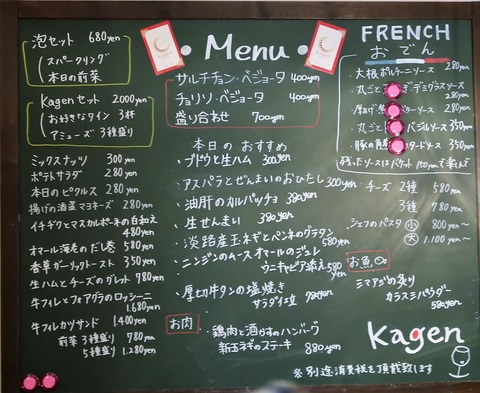 泡セット 680yen
スパークリング
本日の前菜
Kagenセット 2000yen
お好きなワイン 3杯
アミューズ 3種盛り
ミックスナッツ 300yen
ポテトサラダ 280yen
本日のピクルス 280
揚げの酒盗マヨネーズ 280yen
イチヂクとマスカルポーネの白和え
480yen
オマール海老のだし巻 580yen
香草ガーリックトースト 350yen
生ハムとチーズのガレット 780yen
牛フィレとフォアグラのロッシーニ
1.680yen
牛フィレカツサンド 1400yen
前菜 3種盛り 780yen
5種盛り 1.280yen
・Menu・
サルチチョン・ベジョータ 400yen
チョリソ・ベジョータ 400yen
盛り合わせ 700yen
本日のおすすめ
・ブドウと生ハム 300yen
・アスパラとぜんまいのおひたし 300yen
・油肝のカルパッチョ 380yen
・生せんまい 380yen
・淡路産玉ネギとペンネのグラタン 580yen
・ニンジンのムース オマールのジュレ
ウニキャビア添え 580yen
・厚切牛タンの塩焼き
サラダ仕立 780yen
お肉
・鶏肉と酒かすのハンバーグ
・新玉ネギのステーキ 880yen
FRENCH
おでん
・大根ポルチーニソース 280yen
・丸ごと デミグラスソース
280yen
・厚あげ ターソース 280yen
・丸ごと バジルソース 350yen
・豚の角 タードソース 350yen
残ったソースはバケット 150yenで楽んで
・チーズ 2種 580yen
3種 780yen
・シェフのパスタ 小 800yen〜
大 1.100yen〜
お魚
・シマアジの炙り
カラスミパウダー
580yen
Kagen
※別途消費税を頂戴致します